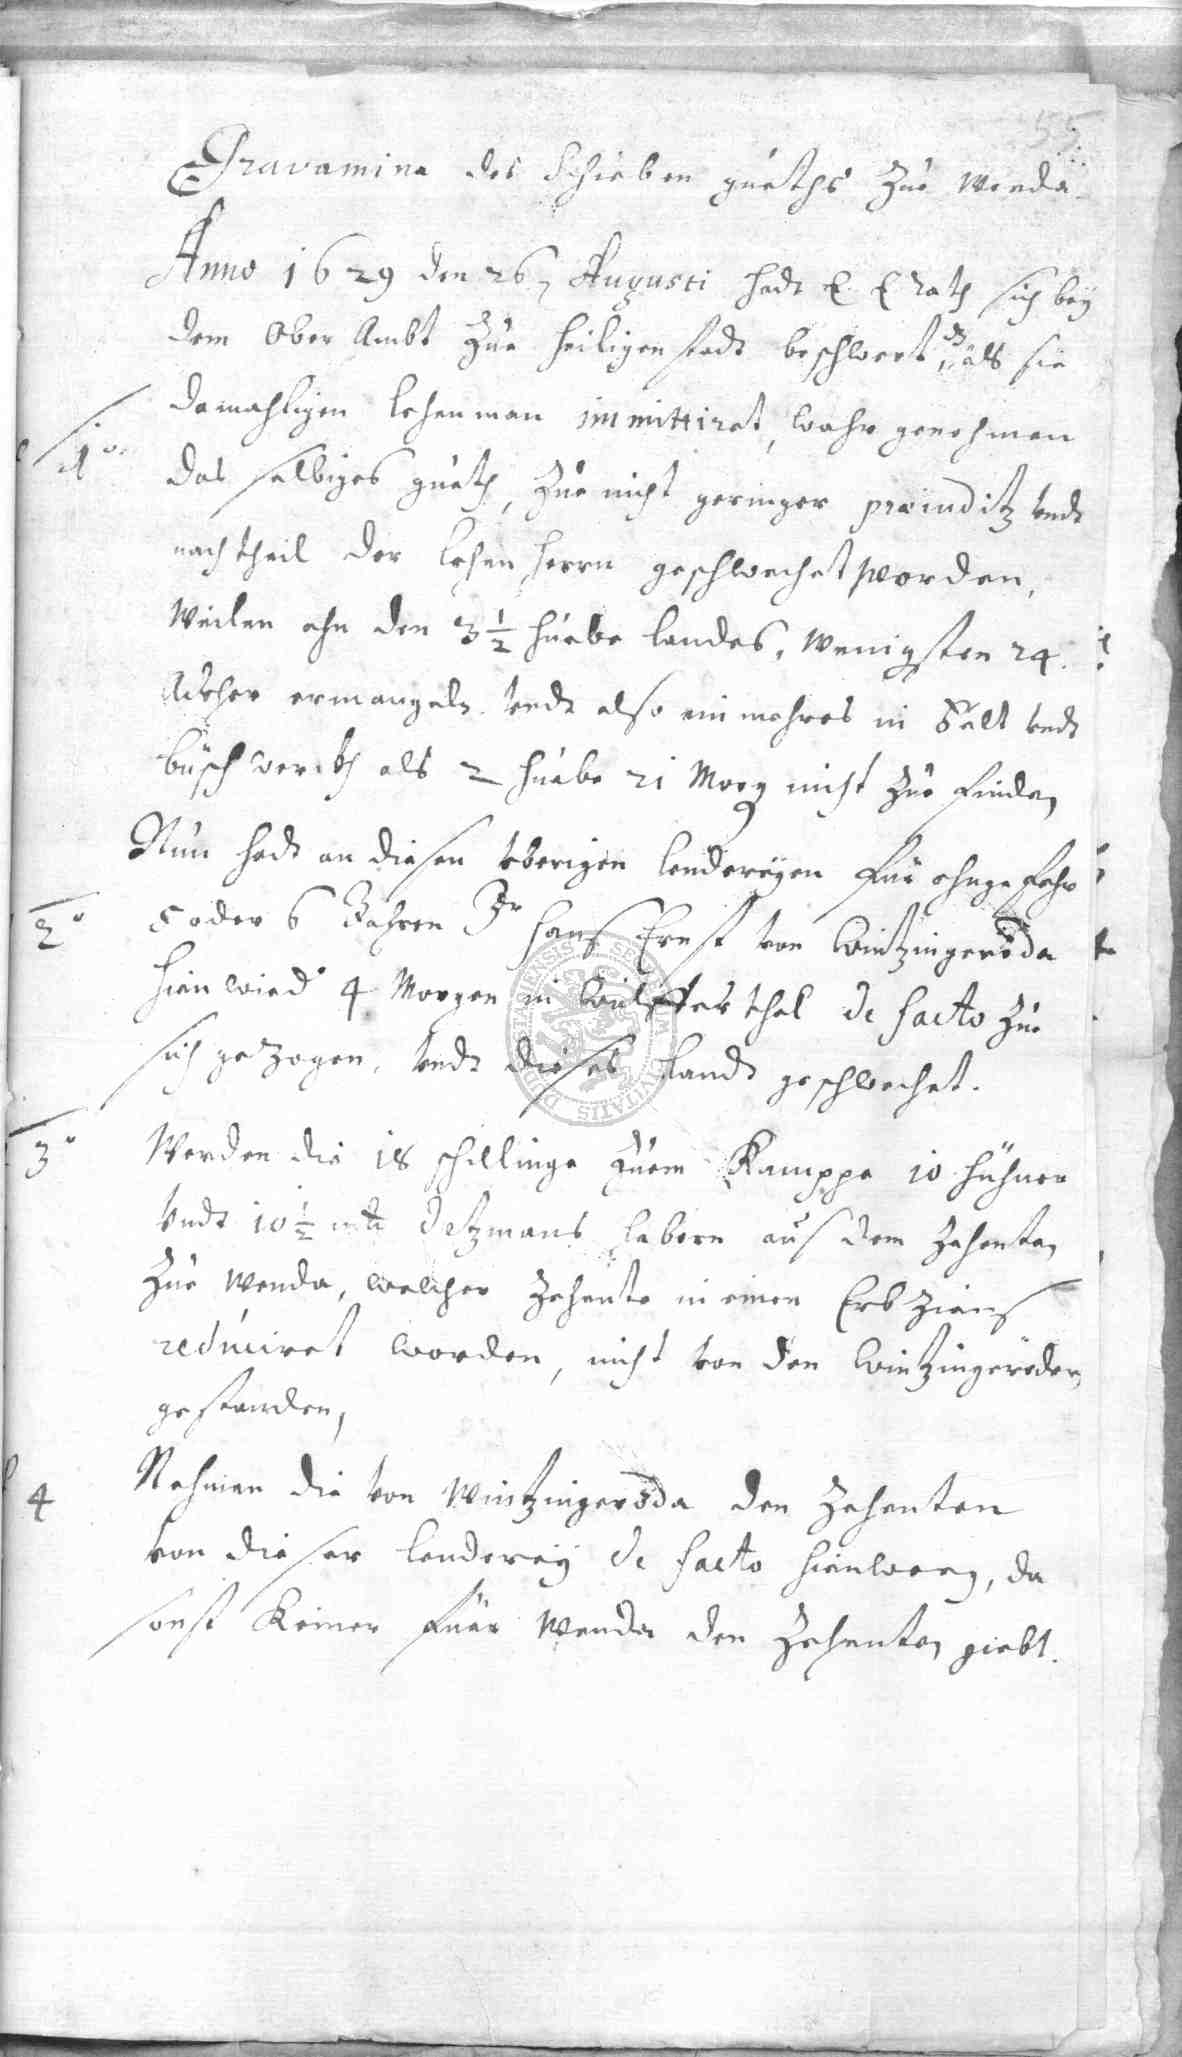 55
Gravamina des Schieben gueths Zue Wenda
Anno 1629 den 26 Augusti hadt E. E Rath sich bey
dem Ober Ambt Zue Heiligenstadt beschwert, dz als sie
damahligen lehenman immittiret, wahr genohmen
1o
das selbiges gueth, Zue nicht geringer praeiuditz vndt
nachtheil der lehen herrn geschwechet worden,
Weilen ahn den 3 1/2 huebe landes, wenigsten 24
Acker ermangeln vndt also ein mehres in Felt vndt
büschwerckh als 2 huebe 21 Morg nicht Zue finden
Nun hadt an diesen vberigen lendereyen für ohngefehr
2o
5 oder 6 Jahren Jr Hans Ernst von Wintzingeroda
hienwied 4 Morgen in thal de facto Zue
sich gezogen, vndt dieses landt geschwechet.
3o
Werden die 18 schillinge Zuem Kamppe 10 hühner
vndt 10 1/2 detzmans habern aus dem Zehenten
Zue Wenda, welcher Zehente in einen Erb Ziens
reduciret worden, nicht von den Wintzingeröder
gestanden,
4
Nehmen die von Wintzingeroda den Zehenten
von dieser lenderey de facto hienweg, da
sonst Keiner fuer Wenda den Zehenten giebt.